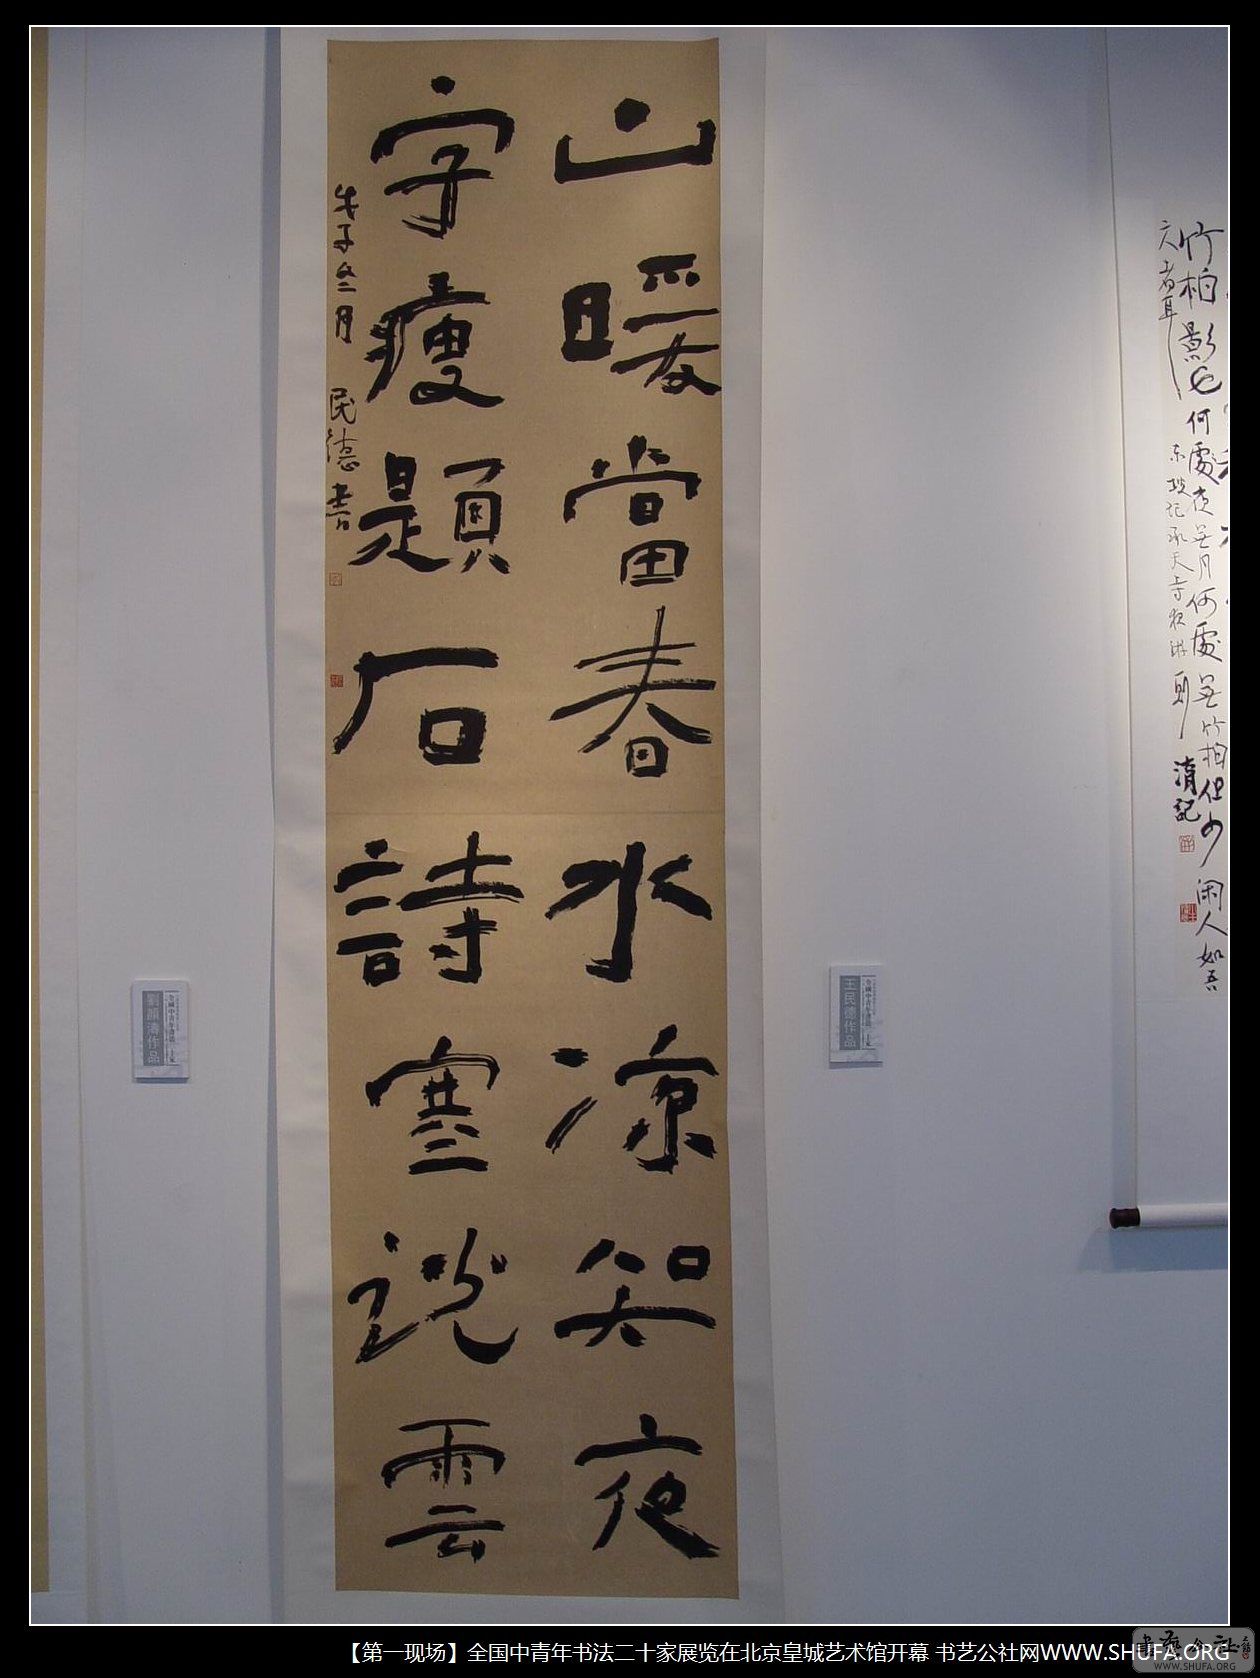 山暖當春水涼知夜
字瘦題石詩寒說雲
戊子三月 民德書
竹柏影也何處夜無月何處無竹柏但少闲人如吾
六者耳
东坡记承天寺夜游
清記
王民德作品
劉顏濤作品
【第一现场】全国中青年书法二十家展览在北京皇城艺术馆开幕 书艺公社网WWW.SHUFA.ORG
书艺公社
WWW.SHUFA.ORG